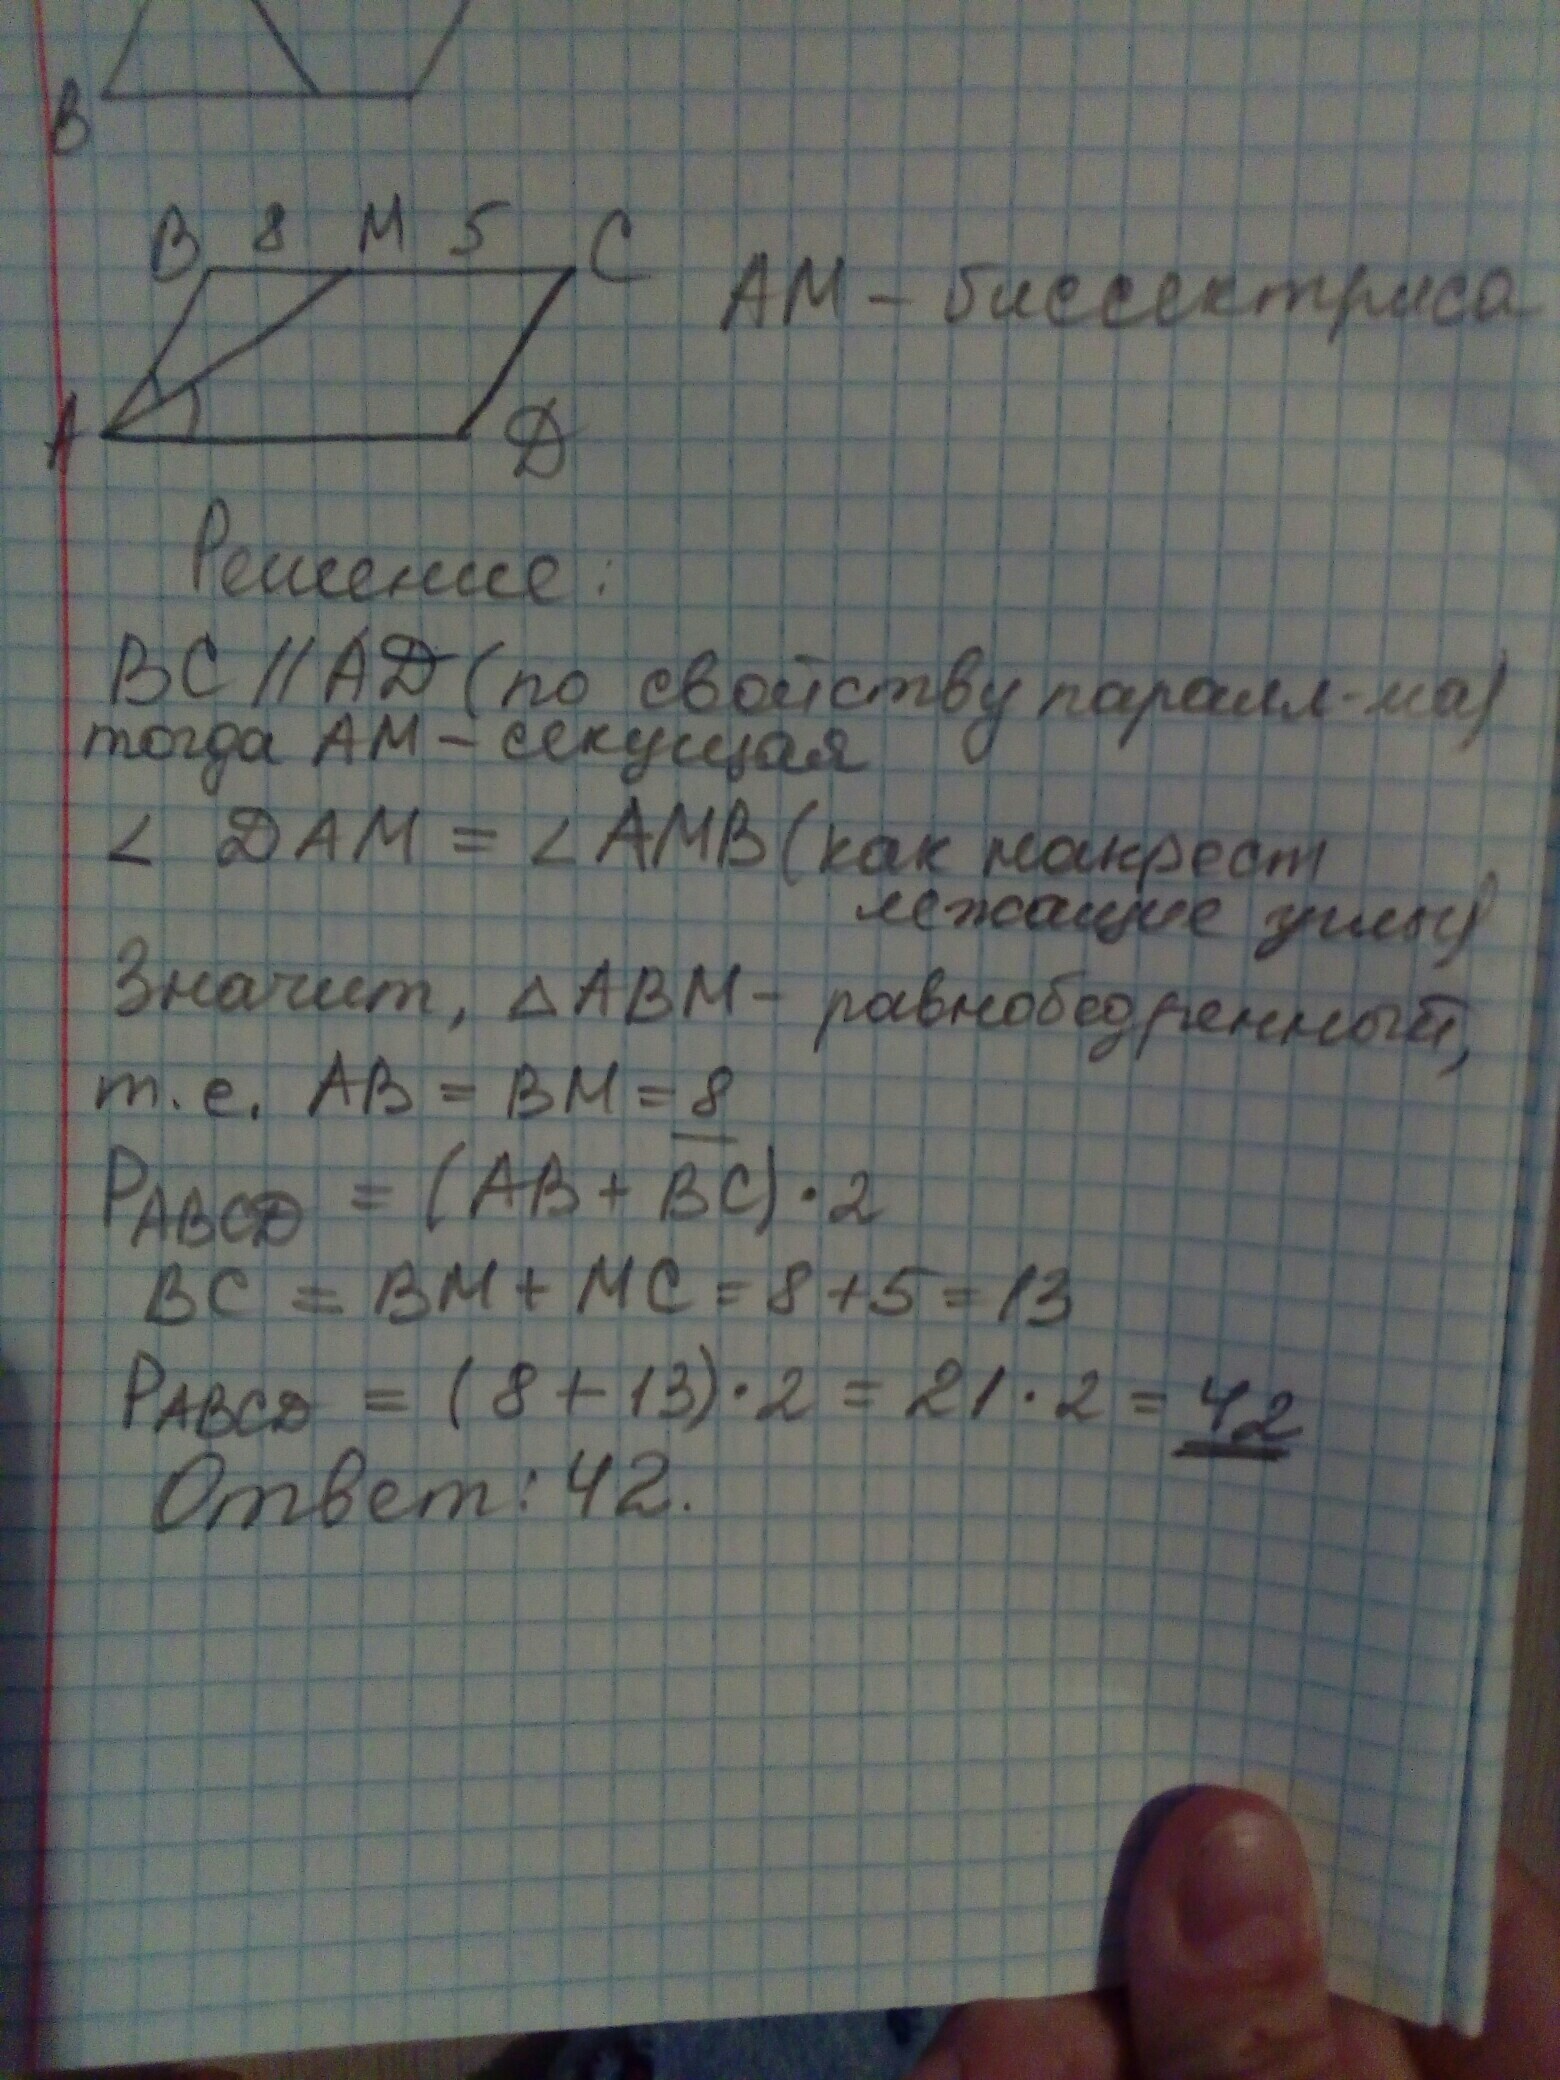 B
B 8 M 5 C
AM - биссектриса
A D
Решение:
BC // AD (по свойству паралл-ма)
тогда AM - секущая
∠ DAM = ∠ AMB (как накрест
лежащие углы)
Значит, △ ABM - равнобедренный,
т.е. AB = BM = 8
PABCD = (AB + BC) · 2
BC = BM + MC = 8 + 5 = 13
PABCD = (8 + 13) · 2 = 21 · 2 = 42
Ответ: 42.